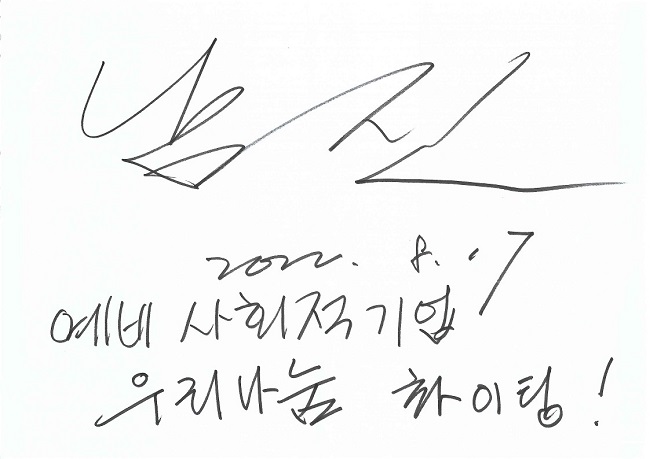 남진
2022. 8. 17
예비 사회적기업
우리나눔 화이팅!